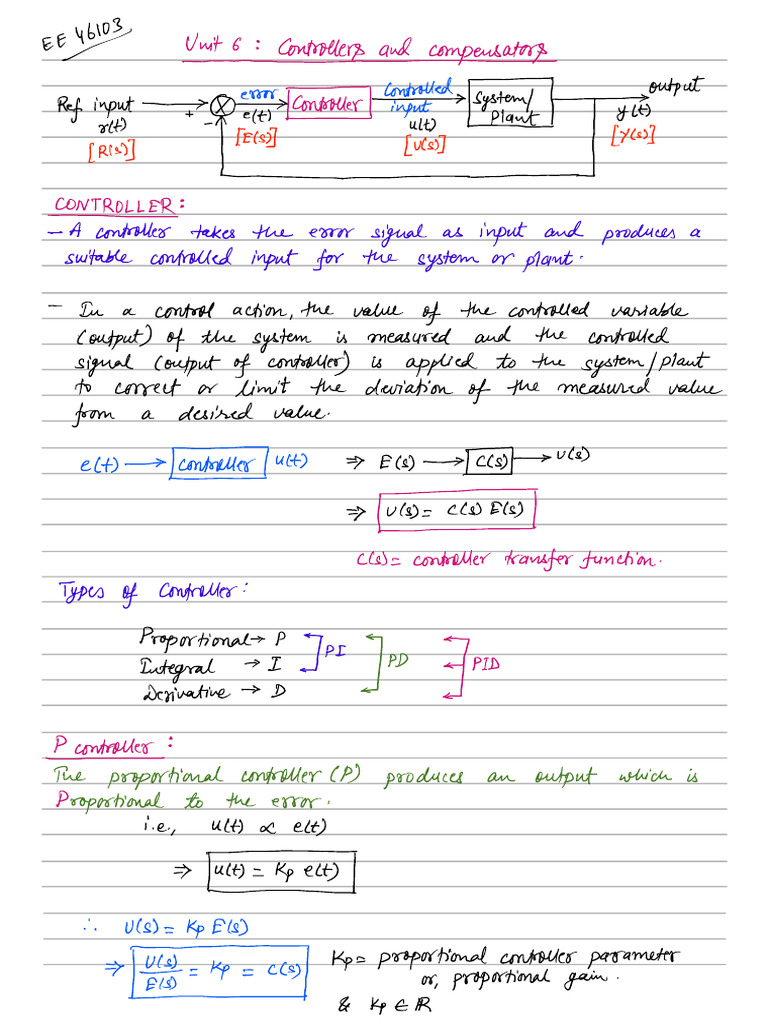 EE 46103
Unit 6 : Controllers and compensators
Ref input r(t) [R(s)]
+
−
error e(t) [E(s)]
Controller
Controlled input u(t) [U(s)]
System/ Plant
output y(t) [Y(s)]
CONTROLLER:
– A controller takes the error signal as input and produces a
suitable controlled input for the system or plant.
– In a control action, the value of the controlled variable
(output) of the system is measured and the controlled
signal (output of controller) is applied to the system/plant
to correct or limit the deviation of the measured value
from a desired value.
e(t) → controller u(t) ⇒ E(s) → C(s) → U(s)
⇒ U(s) = C(s) E(s)
C(s) = controller transfer function.
Types of Controller:
Proportional → P
Integral → I
Derivative → D
PI
PD
PID
P controller :
The proportional controller (P) produces an output which is
Proportional to the error.
i.e., u(t) ∝ e(t)
⇒ u(t) = Kp e(t)
∴ U(s) = Kp E(s)
⇒ U(s)/E(s) = Kp = C(s)
Kp = proportional controller parameter
or, proportional gain.
& Kp ∈ ℝ